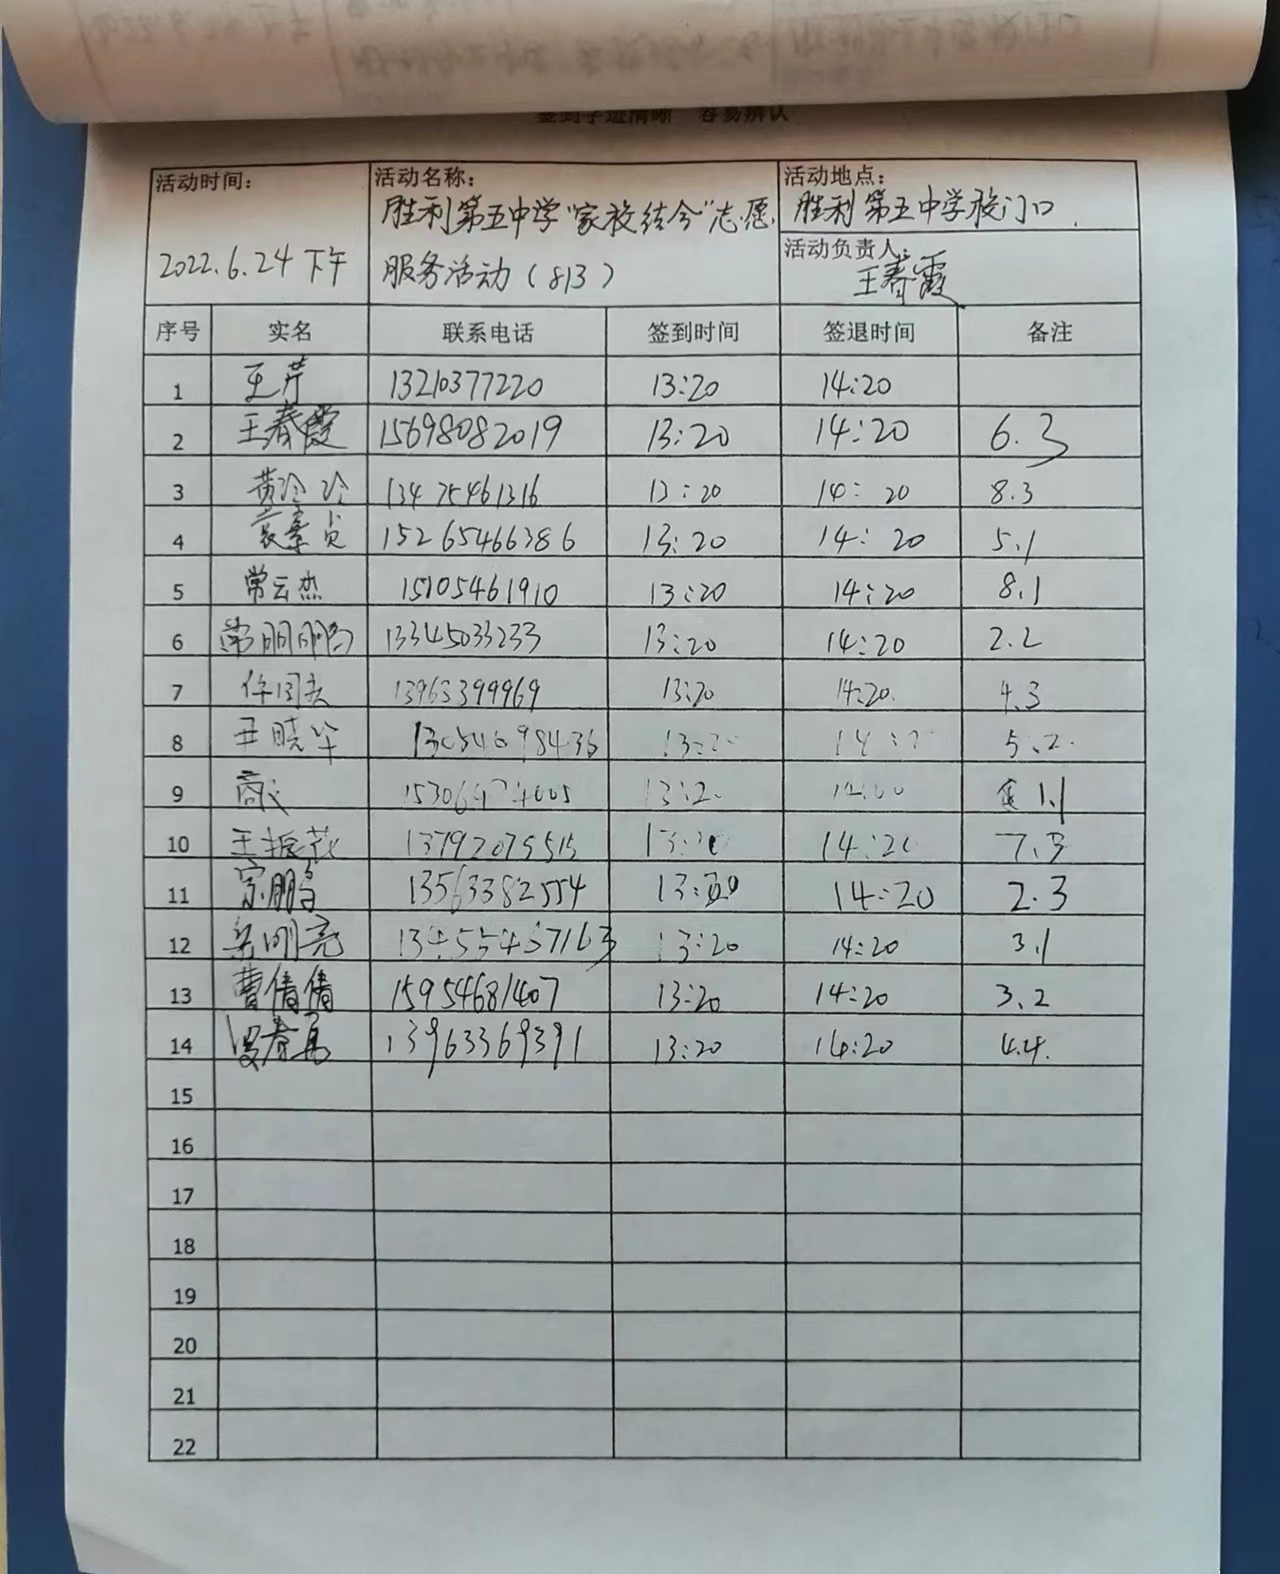 签到字迹清晰 容易辨认
活动时间: 2022.6.24 下午
活动名称: 胜利第五中学"家校结合"志愿
服务活动(813)
活动地点: 胜利第五中学校门口
活动负责人: 王春霞
序号 实名 联系电话 签到时间 签退时间 备注
1 王芹 13210377220 13:20 14:20
2 王春霞 15698082019 13:20 14:20 6.3
3 黄玲玲 13475461316 13:20 14:20 8.3
4 15265466386 13:20 14:20 5.1
5 常云杰 15105461910 13:20 14:20 8.1
6 13345033233 13:20 14:20 2.2
7 13963399969 13:20 14:20. 4.3
8 王晓华 13054698436 5.2.
9 1.1
10 王振花 13792075515 14:20 7.3
11 宗鹏 13563382554 13:20 14:20 2.3
12 梁刚亮 13455467163 13:20 14:20 3.1
13 曹倩倩 15954681407 13:20 14:20 3.2
14 13963369391 13:20 14:20 4.4.
15
16
17
18
19
20
21
22